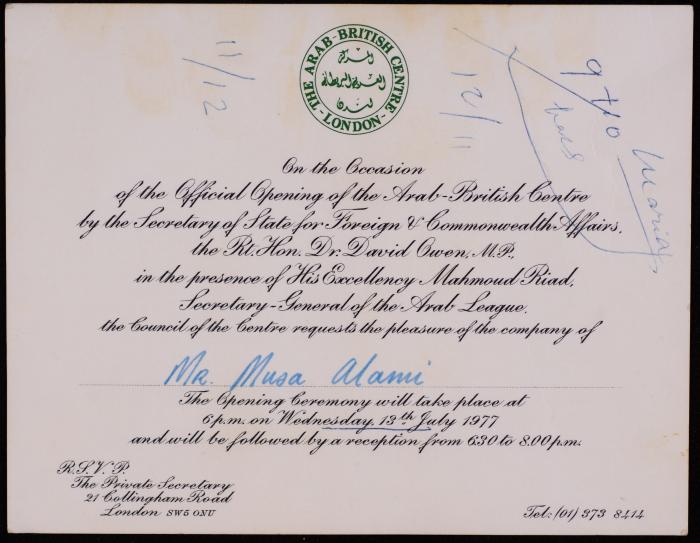 THE ARAB-BRITISH CENTRE
-LONDON-
المركز
العربي البريطاني
لندن
11/12
12/11
On the Occasion
of the Official Opening of the Arab-British Centre
by the Secretary of State for Foreign & Commonwealth Affairs,
the Rt. Hon. Dr. David Owen, M.P.,
in the presence of His Excellency Mahmoud Riad,
Secretary-General of the Arab League,
the Council of the Centre requests the pleasure of the company of
Mr. Musa Alami
The Opening Ceremony will take place at
6 p.m. on Wednesday, 13th July 1977
and will be followed by a reception from 6.30 to 8.00 p.m.
R.S.V.P.
The Private Secretary
21 Collingham Road
London SW5 0NU
Tel: (01) 373 8414